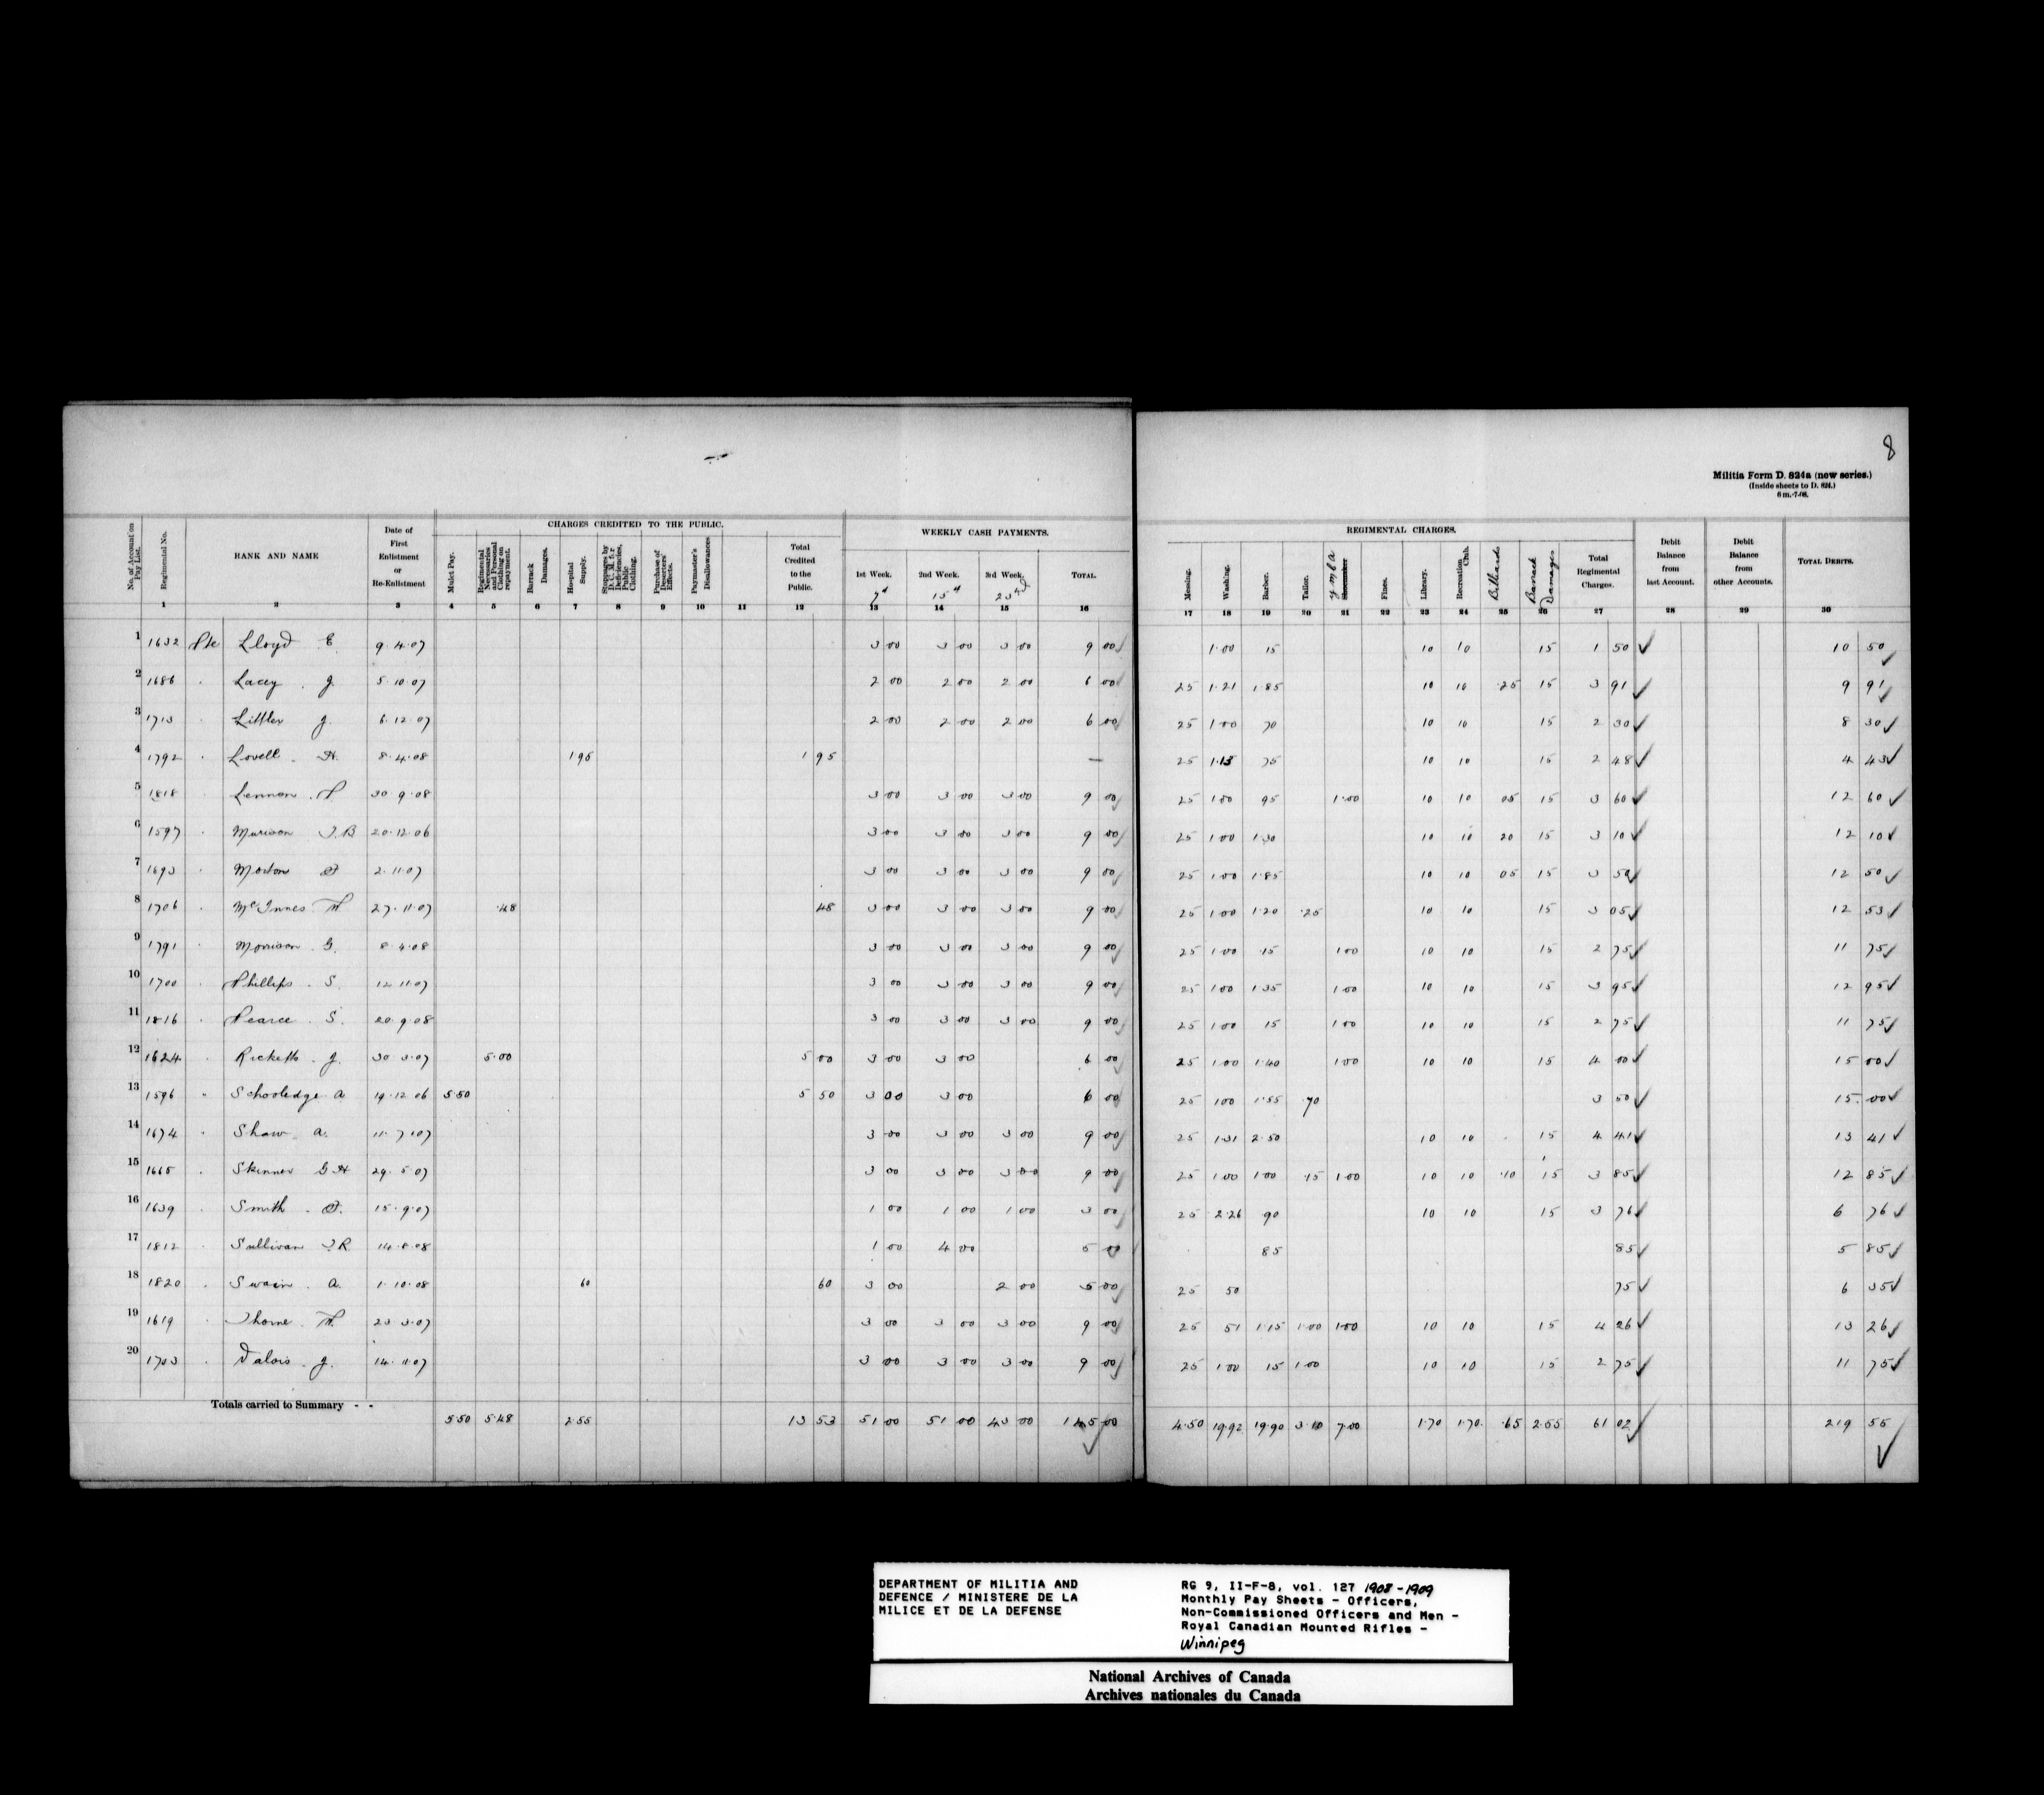 8
Militia Form D. 824a (new series.)
(Inside sheets to D. 824.)
6 m.-7-08.
CHARGES CREDITED TO THE PUBLIC. WEEKLY CASH PAYMENTS. REGIMENTAL CHARGES.
No. of Account on Pay List. Regimental No. RANK AND NAME Date of First Enlistment or Re-Enlistment Mulct Pay. Regimental Necessaries and Personal Clothing on repayment. Barrack Damages. Hospital Supply. Stoppages by D. C. M. for Deficiencies, Public Clothing. Purchase of Deserters' Effects. Paymaster's Disallowances Total Credited to the Public. 1st Week. 7th 2nd Week. 15th 3rd Week. 23rd TOTAL. Messing. Washing. Barber. Tailor. Y M C A Shoemaker Fines. Library. Recreation Club. Billiards Barrack Damages Total Regimental Charges. Debit Balance from last Account. Debit Balance from other Accounts. TOTAL DEBITS.
1 2 3 4 5 6 7 8 9 10 11 12 13 14 15 16 17 18 19 20 21 22 23 24 25 26 27 28 29 30
1 1632 Pte Lloyd E. 9.4.07 3 00 3 00 3 00 9 00 1.00 15 10 10 15 1 50 10 50
2 1686 " Lacey . J. 5.10.07 2 00 2 00 2 00 6 00 25 1.21 1.85 10 10 .25 15 3 91 9 91
3 1713 " Littler J. 6.12.07 2 00 2 00 2 00 6 00 25 1 00 70 10 10 15 2 30 8 30
4 1792 " Lovell . H. 8.4.08 1 95 1 95 — 25 1.13 75 10 10 15 2 48 4 43
5 1818 " Lennon . P 30.9.08 3 00 3 00 3 00 9 00 25 1 00 95 1.00 10 10 05 15 3 60 12 60
6 1597 " Murison J.B 20.12.06 3 00 3 00 3 00 9 00 25 1 00 1.30 10 10 20 15 3 10 12 10
7 1693 " Morton 2.11.07 3 00 3 00 3 00 9 00 25 1 00 1.85 10 10 05 15 3 50 12 50
8 1706 " McInnes 27.11.07 .48 48 3 00 3 00 3 00 9 00 25 1 00 1.20 .25 10 10 15 3 05 12 53
9 1791 " Morrison . G. 8.4.08 3 00 3 00 3 00 9 00 25 1 00 .15 1 00 10 10 15 2 75 11 75
10 1700 " Phillips . S. 12.11.07 3 00 3 00 3 00 9 00 25 1 00 1.35 1 00 10 10 15 3 95 12 95
11 1816 " Pearce . S. 20.9.08 3 00 3 00 3 00 9 00 25 1 00 15 1 00 10 10 15 2 75 11 75
12 1624 " Ricketts . J. 30 3.07 5.00 5 00 3 00 3 00 6 00 25 1.00 1.40 1 00 10 10 15 4 00 15 00
13 1596 " Schooledge A 19.12 06 5.50 5 50 3 00 3 00 6 00 25 1 00 1.55 .70 3 50 15 00
14 1674 " Shaw . A. 11.7.07 3 00 3 00 3 00 9 00 25 1.31 2.50 10 10 15 4 41 13 41
15 1665 " Skinner G H 29.5.07 3 00 3 00 3 00 9 00 25 1.00 1.00 .15 1.00 10 10 .10 15 3 85 12 85
16 1639 " Smith . 15.9.07 1 00 1 00 1 00 3 00 25 2.26 .90 10 10 15 3 76 6 76
17 1812 " Sullivan J.R. 14.8.08 1 00 4 00 5 00 85 85 5 85
18 1820 " Swain . A. 1.10.08 60 60 3 00 2 00 5 00 25 50 75 6 35
19 1619 " Thorne . 23 3.07 3 00 3 00 3 00 9 00 25 51 1.15 1.00 1.00 10 10 15 4 26 13 26
20 1703 " Valois . J. 14.11.07 3 00 3 00 3 00 9 00 25 1.00 15 1 00 10 10 15 2 75 11 75
Totals carried to Summary - - 5.50 5.48 2.55 13 53 51 00 51 00 43 00 145 00 4.50 19.92 19.90 3.10 7.00 1.70 1.70 .65 2.55 61 02 219 55
DEPARTMENT OF MILITIA AND
DEFENCE / MINISTERE DE LA
MILICE ET DE LA DEFENSE
RG 9, II-F-8, vol. 127 1908-1909
Monthly Pay Sheets - Officers,
Non-Commissioned Officers and Men -
Royal Canadian Mounted Rifles -
Winnipeg
National Archives of Canada
Archives nationales du Canada